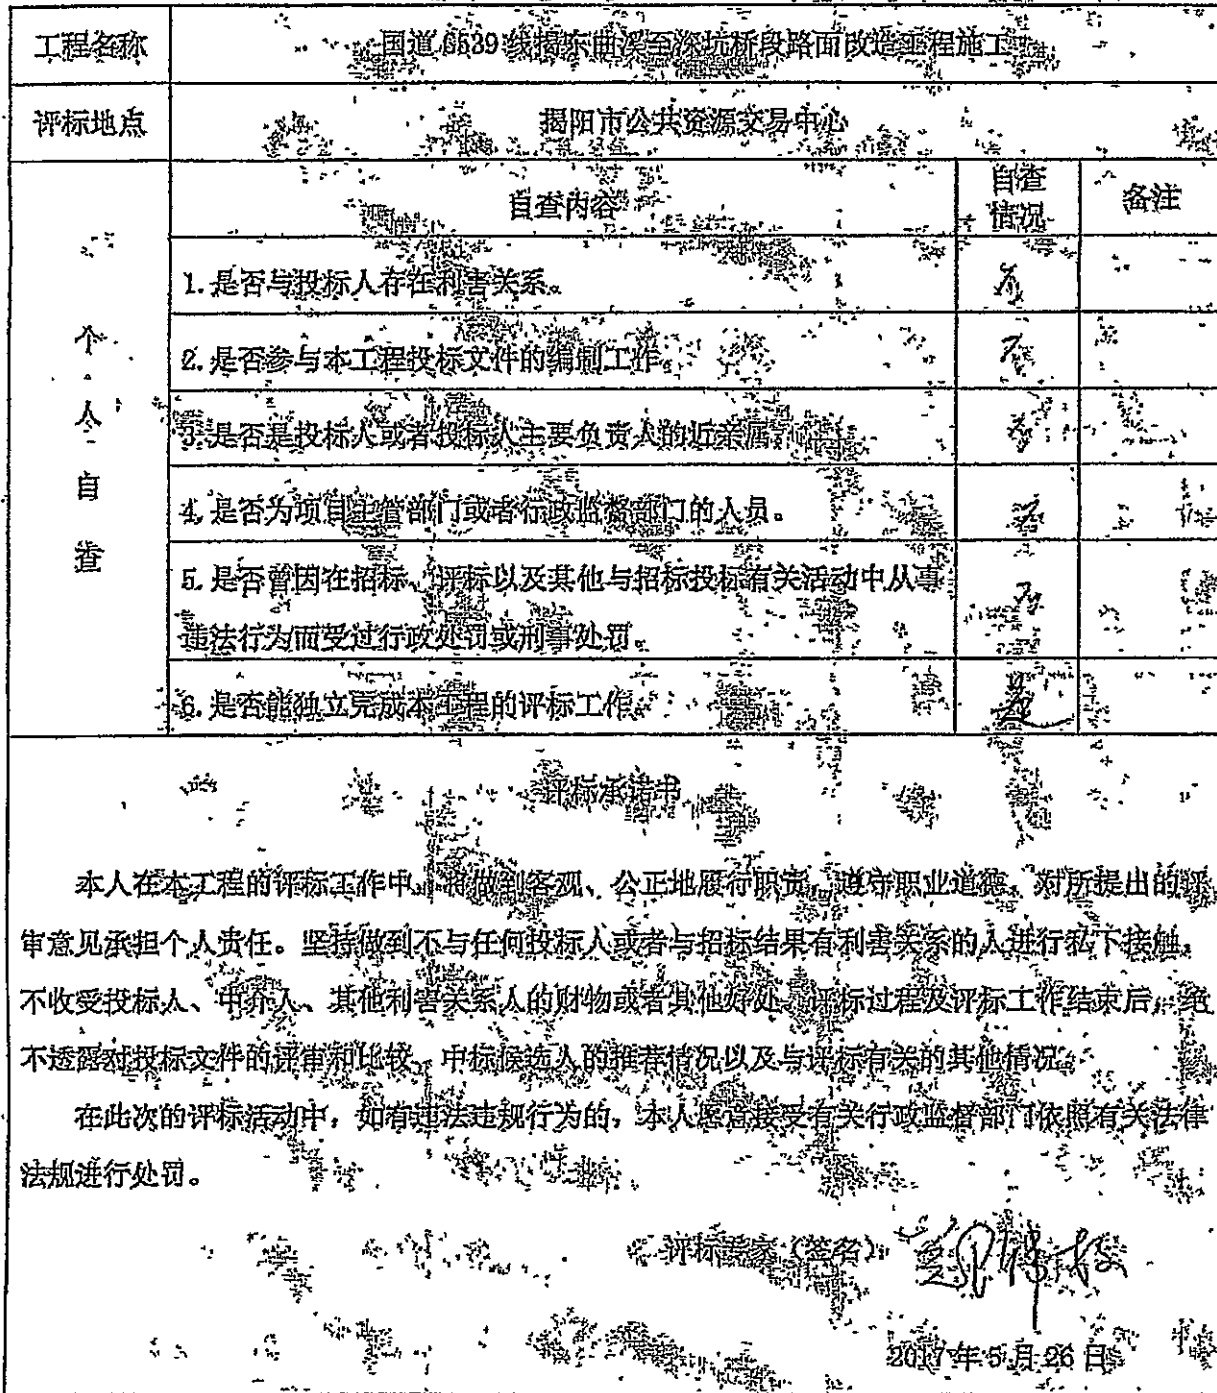 工程名称 国道G539线揭东曲溪至深坑桥段路面改造工程施工
评标地点 揭阳市公共资源交易中心
个人自查 自查内容 自查情况 备注
1. 是否与投标人存在利害关系。 否
2. 是否参与本工程投标文件的编制工作。 否
3. 是否是投标人或者投标人主要负责人的近亲属。 否
4. 是否为项目主管部门或者行政监督部门的人员。 否
5. 是否曾因在招标、评标以及其他与招标投标有关活动中从事
违法行为而受过行政处罚或刑事处罚。 否
6. 是否能独立完成本工程的评标工作。 是
评标承诺书
本人在本工程的评标工作中，将做到客观、公正地履行职责，遵守职业道德、对所提出的评
审意见承担个人责任。坚持做到不与任何投标人或者与招标结果有利害关系的人进行私下接触。
不收受投标人、中介人、其他利害关系人的财物或者其他好处。评标过程及评标工作结束后，绝
不透露对投标文件的评审和比较、中标候选人的推荐情况以及与评标有关的其他情况。
在此次的评标活动中，如有违法违规行为的，本人愿意接受有关行政监督部门依照有关法律
法规进行处罚。
评标专家（签名）：
2017年5月26日